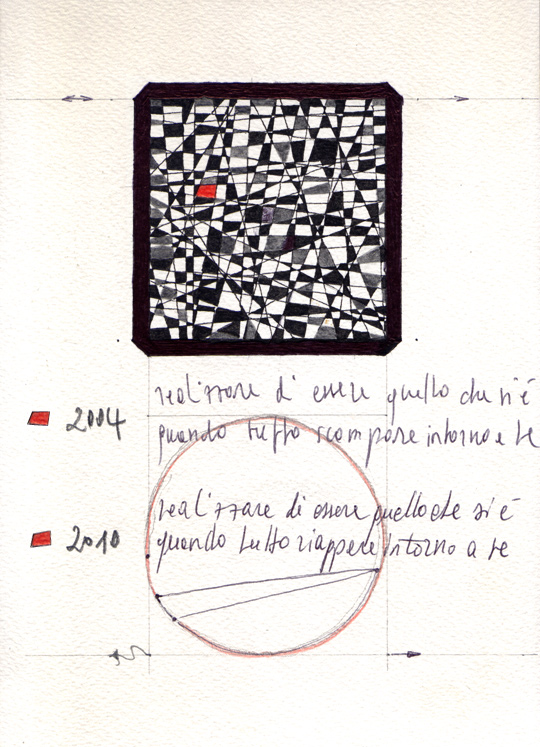 2004 realizzare di essere quello che si é
quando tutto scompare intorno a te
2010 realizzare di essere quello che si é
quando tutto riappare intorno a te